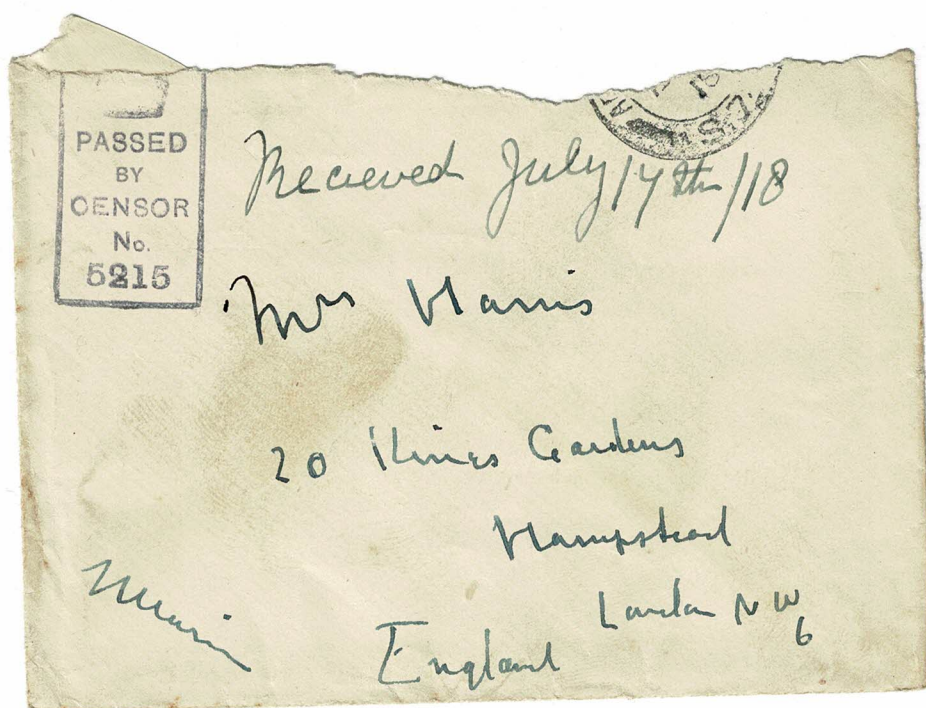 PASSED
BY
CENSOR
No.
5215
Recieved July 14th/18
Mrs Harris
20 Kings Gardens
Hampstead
London NW6
England